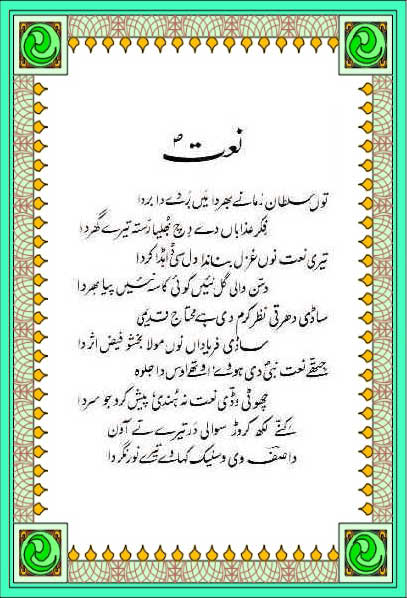 نعت ؐ
توں سلطان زمانے بھر دا میں بردے دا بردا
فکر عذاباں دے وچ بھلیا رستہ تیرے گھر دا
تیری نعت نوں غزل بناندا دل سی ایڈا کردا
دین والی گل نئیں کوئی کاسہ نئیں پیا بھردا
ساڈی دھرتی نظر کرم دی ہے محتاج قدیمی
ساڈی فریاداں نوں مولا بخشو فیض اثر دا
جتھے نعت نبیؐ دی ہووے اوتھے اوس دا جلوہ
چھوٹی وڈی نعت نہ ہندی پیش کرو جو سردا
کنے لکھ کروڑ سوالی در تیرے تے آون
واصف وی وسنیک کہاوے تیرے نور نگر دا